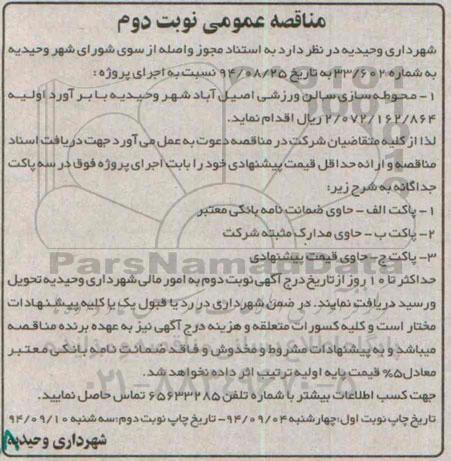 مناقصه عمومی نوبت دوم
شهرداری وحیدیه در نظر دارد به استناد مجوز واصله از سوی شورای شهر وحیدیه
به شماره ۳۳/۶۰۲ به تاریخ ۹۴/۰۸/۲۵ نسبت به اجرای پروژه :
۱- محوطه سازی سالن ورزشی اصیل آباد شهر وحیدیه با بر آورد اولیه
۲/۰۷۲/۱۶۲/۸۶۴ ریال اقدام نماید.
لذا از کلیه متقاضیان شرکت در مناقصه دعوت به عمل می آورد جهت دریافت اسناد
مناقصه و ارائه حداقل قیمت پیشنهادی خود را بابت اجرای پروژه فوق در سه پاکت
جداگانه به شرح زیر:
۱- پاکت الف - حاوی ضمانت نامه بانکی معتبر
۲- پاکت ب - حاوی مدارک مثبته شرکت
۳- پاکت ج - حاوی قیمت پیشنهادی
ParsNamadData
حداکثر تا ۱۰ روز از تاریخ درج آگهی نوبت دوم به امور مالی شهرداری وحیدیه تحویل
ورسید دریافت نمایند. در ضمن شهرداری در رد یا قبول یک یا کلیه پیشنهادات
مختار است و کلیه کسورات متعلقه و هزینه درج آگهی نیز به عهده برنده مناقصه
میباشد و به پیشنهادات مشروط و مخدوش و فاقد ضمانت نامه بانکی معتبر
معادل ۵% قیمت پایه اولیه ترتیب اثر داده نخواهد شد.
۰۲۱-۸۸۳۴۹۶۷۰-۵
جهت کسب اطلاعات بیشتر با شماره تلفن ۶۵۶۳۳۲۸۵ تماس حاصل نمایید.
تاریخ چاپ نوبت اول: چهارشنبه ۹۴/۰۹/۰۴- تاریخ چاپ نوبت دوم: سه شنبه ۹۴/۰۹/۱۰
شهرداری وحیدیه